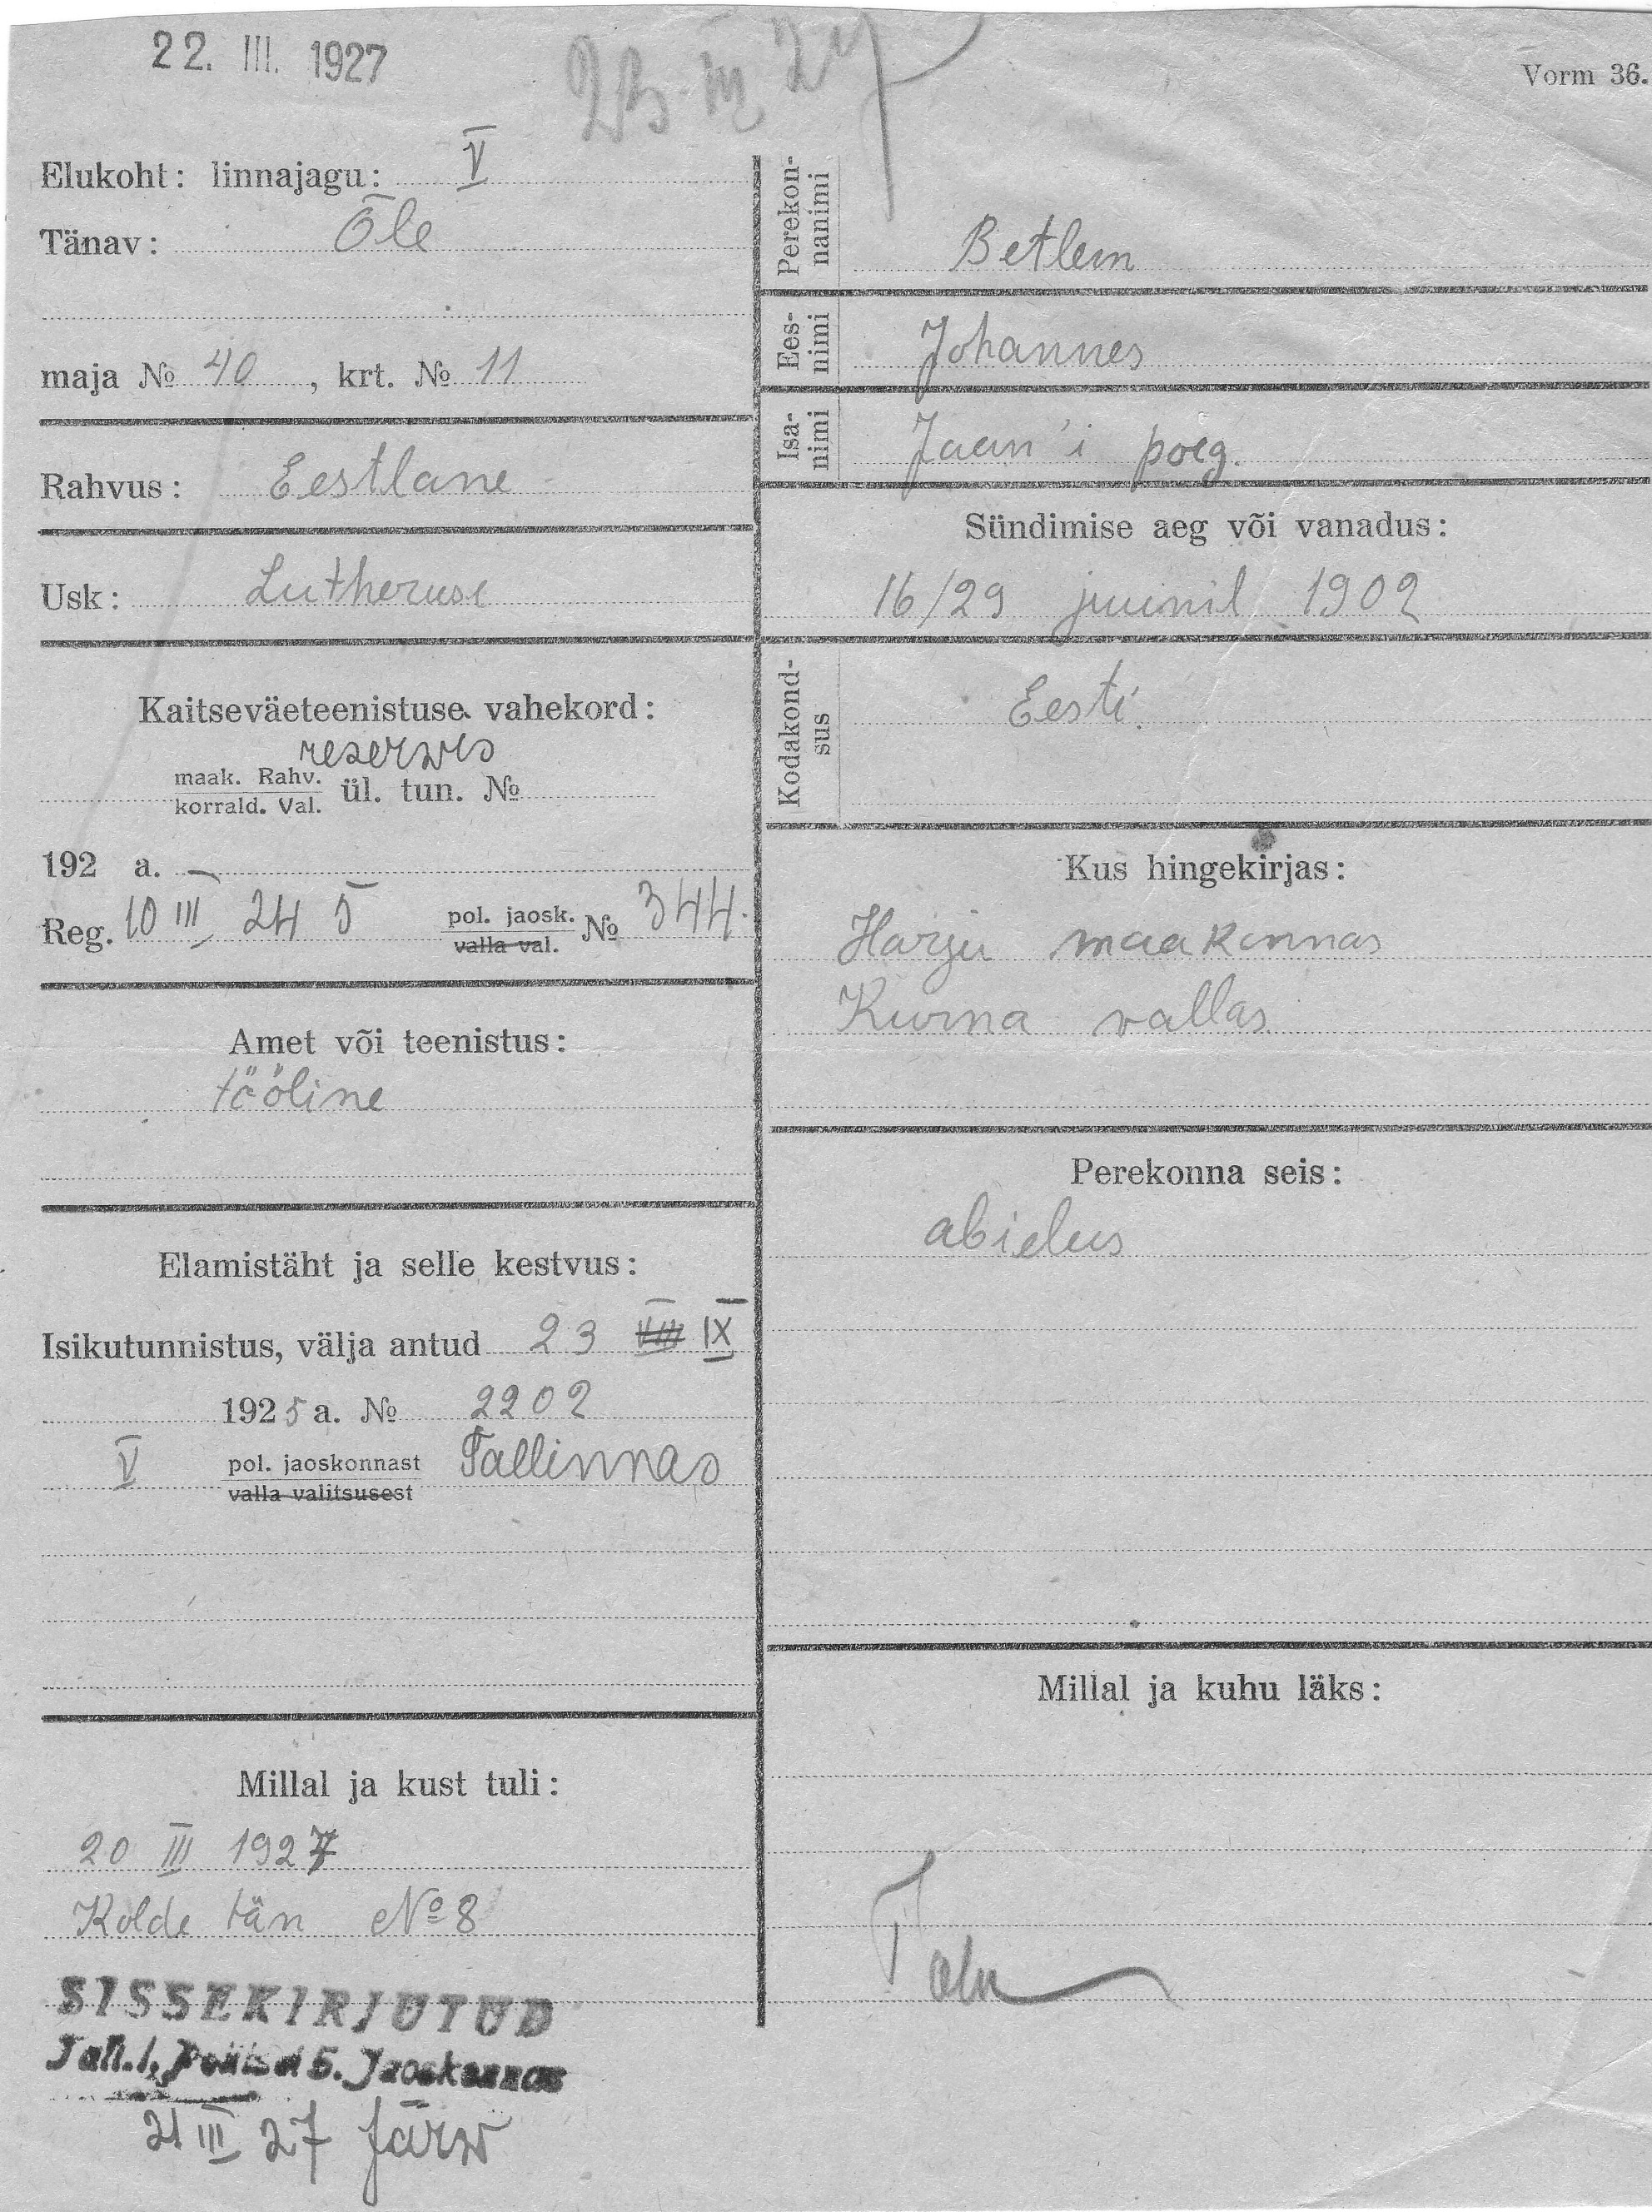 22. III. 1927
23. III 27
Vorm 36.
Elukoht: linnajagu: V
Tänav: Õle
maja № 40, krt. № 11
Rahvus: Eestlane
Usk: Lutheruse
Kaitseväeteenistuse vahekord:
reservis
maak. Rahv.
korrald. Val. ül. tun. №
192 a. —
Reg. 10 III 24 5 pol. jaosk. № 344.
valla val.
Amet või teenistus:
tööline
Elamistäht ja selle kestvus:
Isikutunnistus, välja antud 23 VIII IX
1925 a. № 2202
V pol. jaoskonnast Tallinnas
valla valitsusest
Millal ja kust tuli:
20 III 1927
Kolde tän №8
SISSEKIRJUTUD
Tall. l. Politsei 5. Jaoskonnas
21 III 27 Järw
Perekon-
nanimi
Betlem
Ees-
nimi
Johannes
Isa-
nimi
Jaan'i poeg.
Sündimise aeg või vanadus:
16/29 juunil 1902
Kodakond-
sus
Eesti.
Kus hingekirjas:
Harju maakonnas
Kurna vallas
Perekonna seis:
abielus
Millal ja kuhu läks: